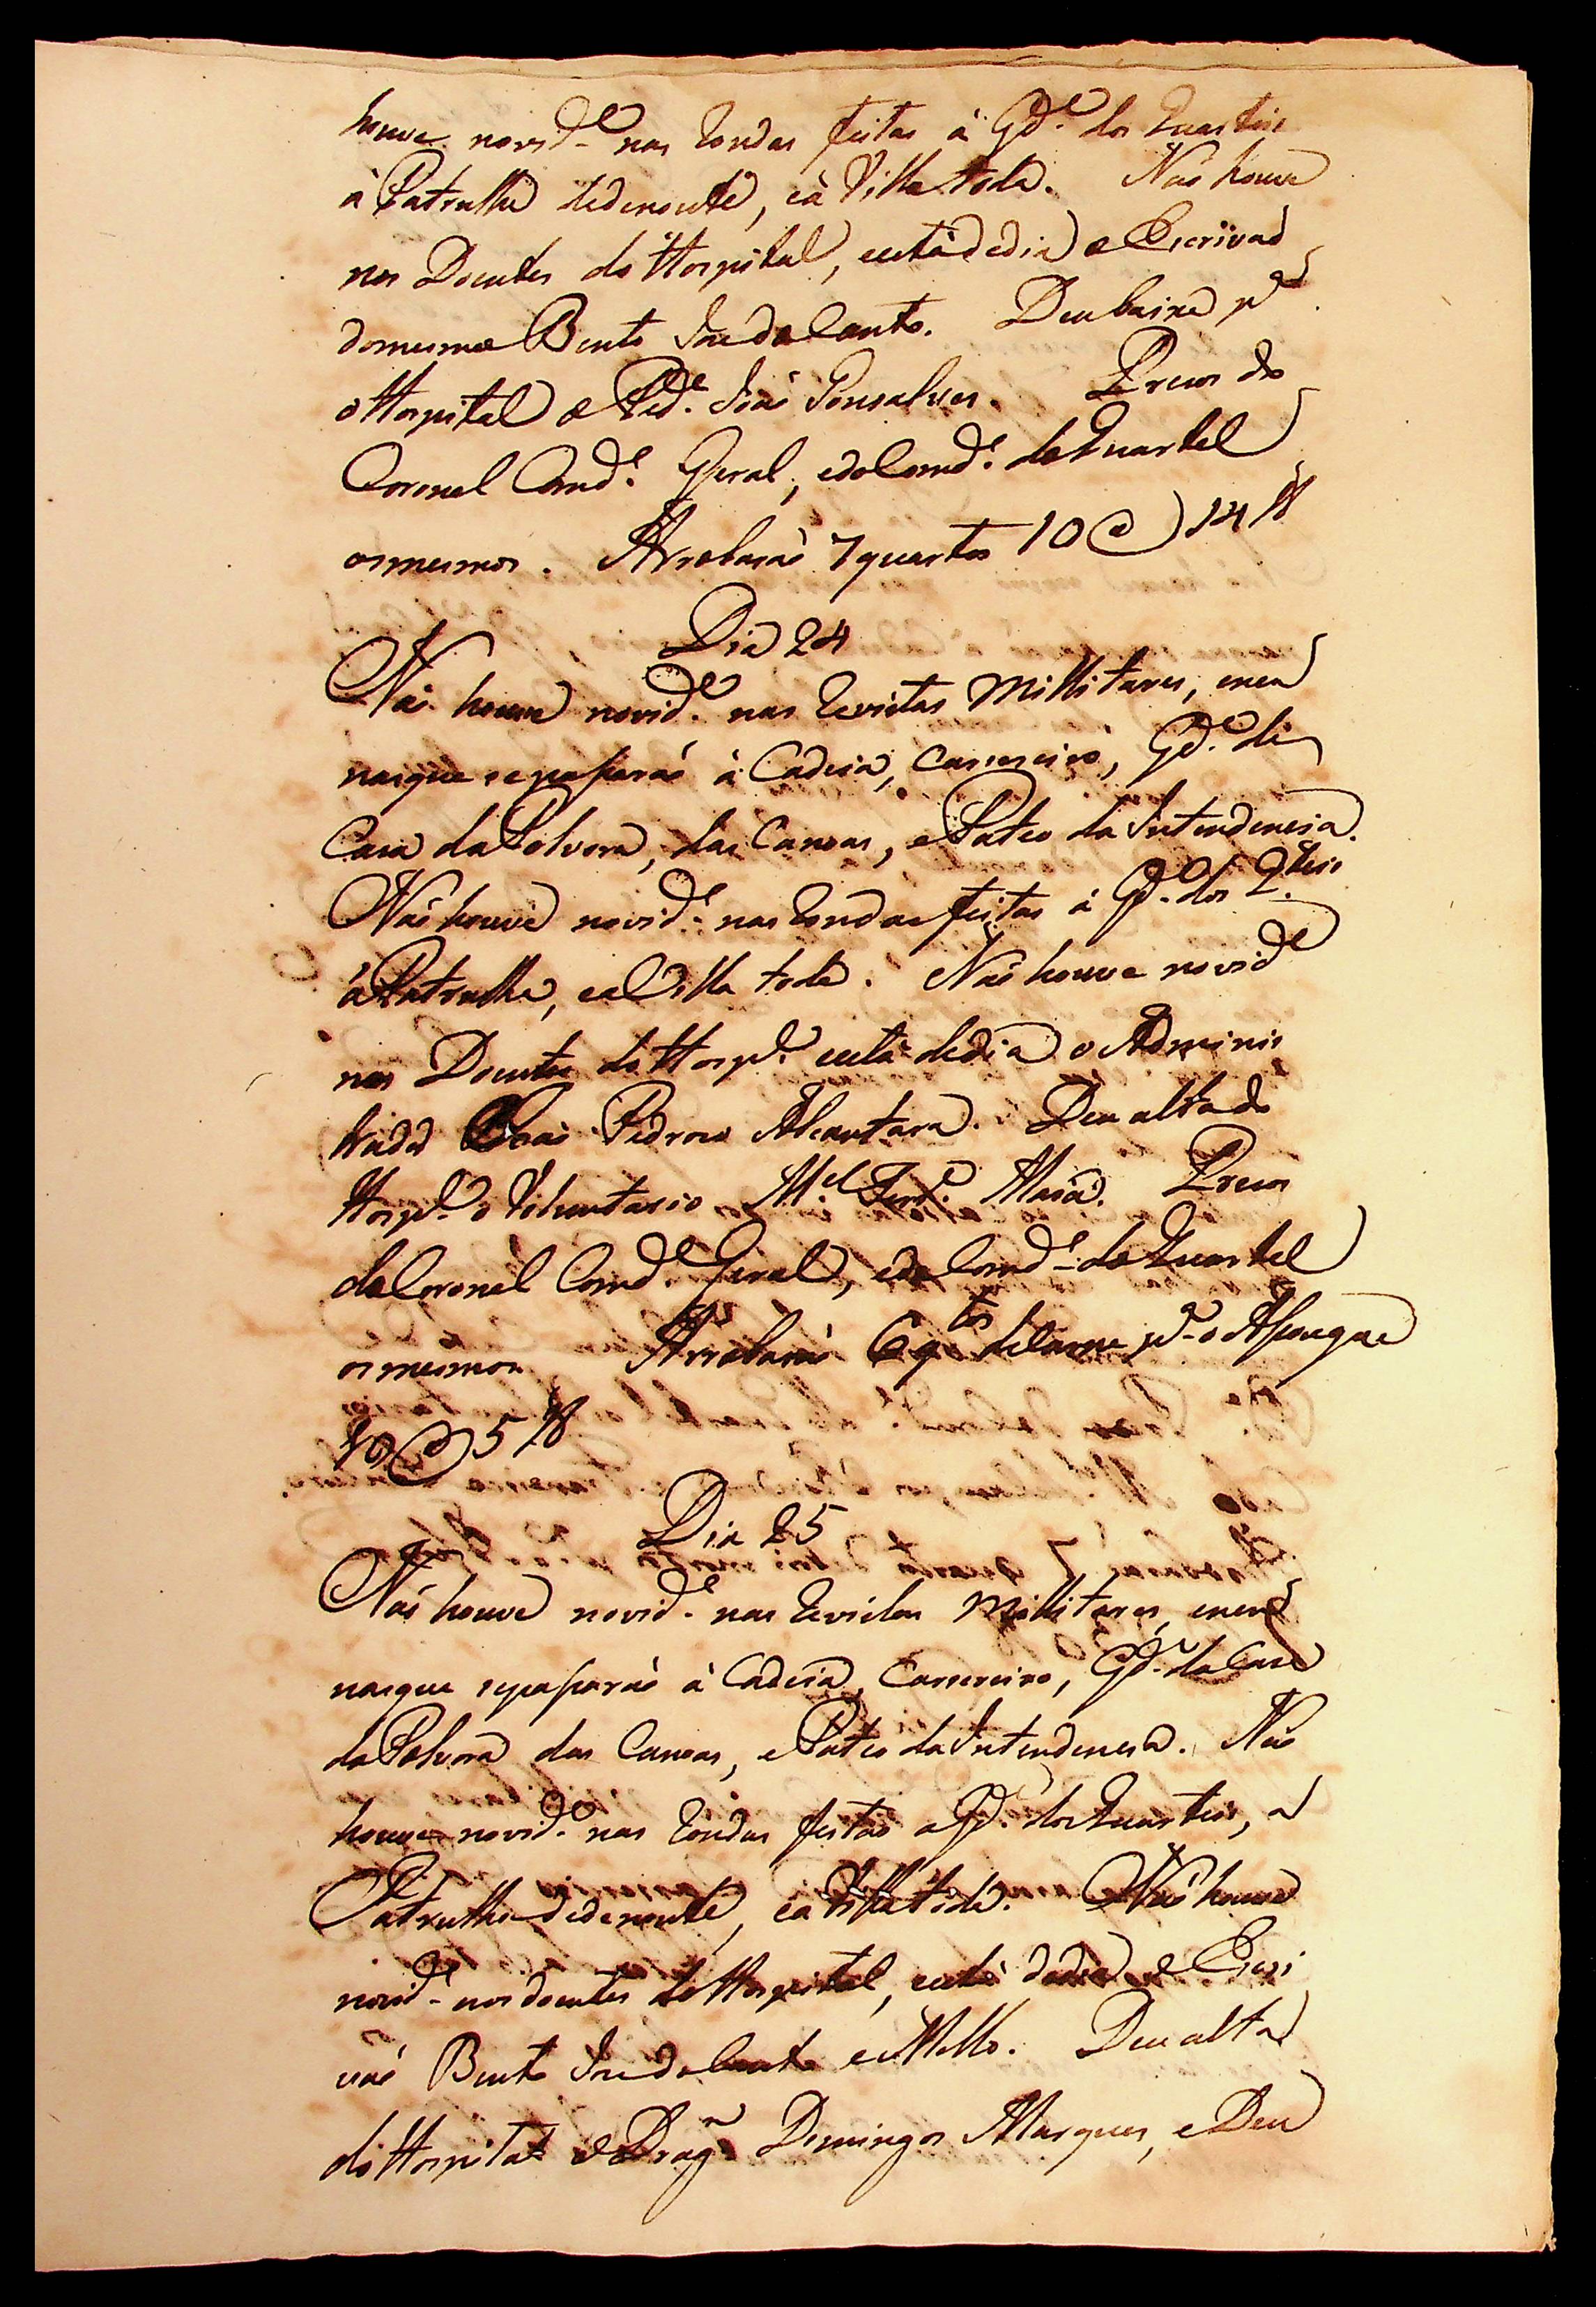 houve novid.e nas Rondas feitas á Gd.e dos Quarteis
á Patrulha dedenoute, eá Villa toda. Não houve
nos Doentes do Hospital, eestá dedia o Escrivaõ
domesmo Bento Joze do Canto. Deu baixa p.a
o Hospital o Ped.e Joaõ Gonsalves. Prezos do
Coronel Comd.e Geral, edo Comd.e do Quartel
osmesmos. Arrobaraõ 7 quartos 10 @ 14 ℔
Dia 24
Naõ houve novid.e nas Revistas Millitares, enem
nasque sepassaraõ á Cadeia, Carsereiro, Gd.e da
Casa da Polvora, das Canoas, e Pateo da Intendencia.
Naõ houve novid.e nas Rondas feitas á Gd.e dos Q.teis
á Patrulha, eá Villa toda. Naõ houve novid.e
nos Doentes do Hosp.l eestá dedia o Adminis
trador Joaõ Pedrozo Alcantara. Deu alta do
Hosp.l o Voluntario M.el Ferr.a Prezos
do Coronel Comd.e Geral, edo Comd.e do Quartel
osmesmos Arrobaraõ 6 q.tos deCarne p.a o Asougue
10 @ 5 ℔
Dia 25
Naõ houve novid.e nas Revistas Millitares, enem
nasque sepassaraõ á Cadeia, Carsereiro, Gd.e da Casa
da Polvora das Canoas, e Pateo da Intendencia. Naõ
houve novid.e nas Rondas feitas a Gd.e dos Quarteis, a
Patrulha dedenoute, eá Villa toda. Naõ houve
novid.e nos doentes do Hospital, eestá dedia o Escri
vaõ Bento Joze do Canto e Mello. Deu alta
do Hospital o Drag.m Domingos Marques, e Deu